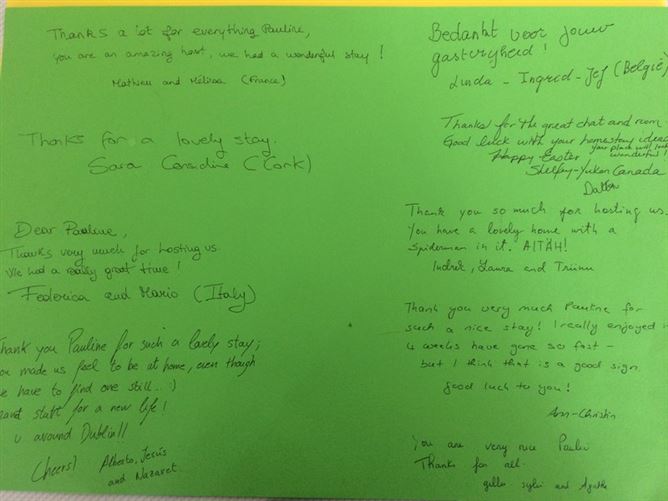 Thanks a lot for everything Pauline,
you are an amazing host, we had a wonderful stay !
Mathieu and Mélissa (France)
Thanks for a lovely stay.
Sara Considine (Cork)
Dear Pauline,
Thanks very much for hosting us.
We had a really great time !
Federica and Mario (Italy)
hank you Pauline for such a lovely stay;
ou made us feel to be at home, even though
e have to find one still.. :)
start for a new life !
u around Dublin!!
Cheers! Alberto, Jesús
and Nazaret.
Bedankt voor jouw
gastvrijheid !
Linda - Ingrid - Jef (België)
Thanks for the great chat and room
Good luck with your homestay ideas
your place will look
Happy Easter wonderful !
Shelley - Yukon Canada
Dalton
Thank you so much for hosting us.
You have a lovely home with a
Spiderman in it. AITÄH!
Indrek, Laura and Triinu
Thank you very much Pauline for
such a nice stay! I really enjoyed
4 weeks have gone so fast -
but I think that is a good sign.
Good luck to you !
Ann-Christin
You are very nice
Thanks for all.
and Agathe